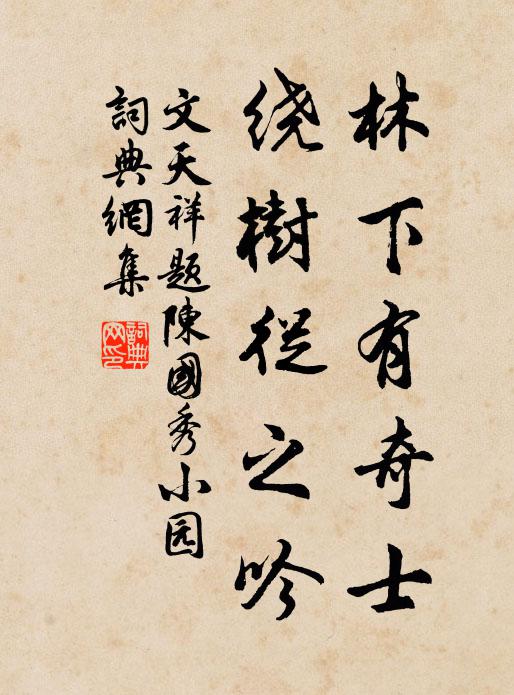 林下有奇士
绕樹從之吟
文天祥题陳國秀小园
詞典網集
詞典网印